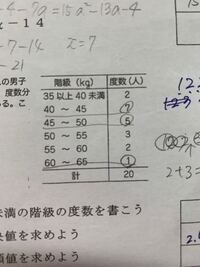 -4-7a=15a²-13a-4
x-14
-7-14 x=7
-21
人の男子
度数分
る。こ
階級 (kg) 度数(人)
35以上40未満 2
40 ～ 45 7
45 ～ 50 5
50 ～ 55 3
55 ～ 60 2
60 ～ 65 1
計 20
2+3=
未満の階級の度数を書こう
央値を求めよう
頻値を求めよう